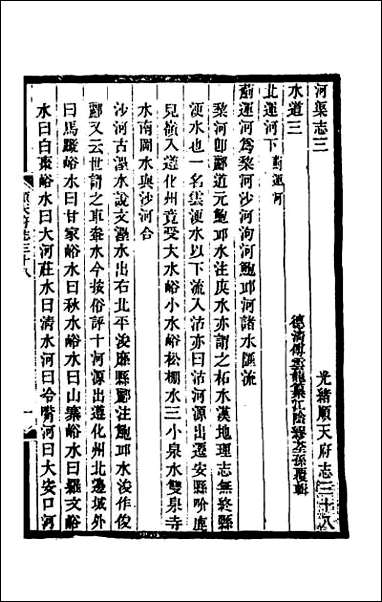 光緒順天府志三十八
河渠志三
德清傅雲龍纂江陰繆荃孫覆輯
水道三
北運河下薊運河
薊運河爲黎河沙河泃河鮑邱河諸水匯流
黎河卽酈道元鮑邱水注庚水亦謂之柘水漢地理志無終縣
浭水也一名雲浭水以下流入沽亦曰沽河源出遷安縣
兒嶺入遵化州竟受大水峪小水峪松棚水三小泉水雙泉寺
水南岡水與沙河合
沙河古灅水說文灅水出右北平浚靡縣酈注鮑邱水浚作俊
酈又云世謂之車軬水今按俗評十河源出遵化州北邊城外
曰馬蹤峪水曰甘家峪水曰秋水峪水曰山寨峪水曰羅文峪
水曰白棗峪水曰大河莊水曰清水河曰冷嘴河曰大安口河
順天府志三十八
一